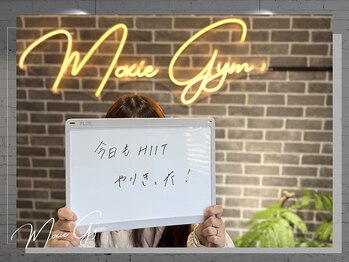 Moxie Gym.
PLUS
今日も HIIT
やりきった!
Moxie Gym.